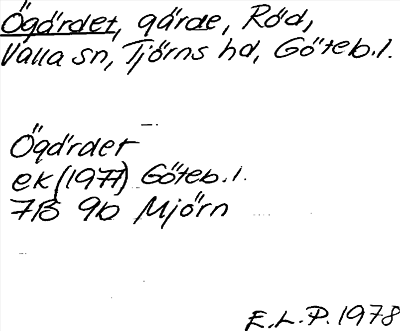 Ögärdet, gärde, Röd,
Valla sn, Tjörns hd, Göteb.l.
Ögärdet
ek (1977) Göteb.l.
7B 9b Mjörn
E.L.P. 1978